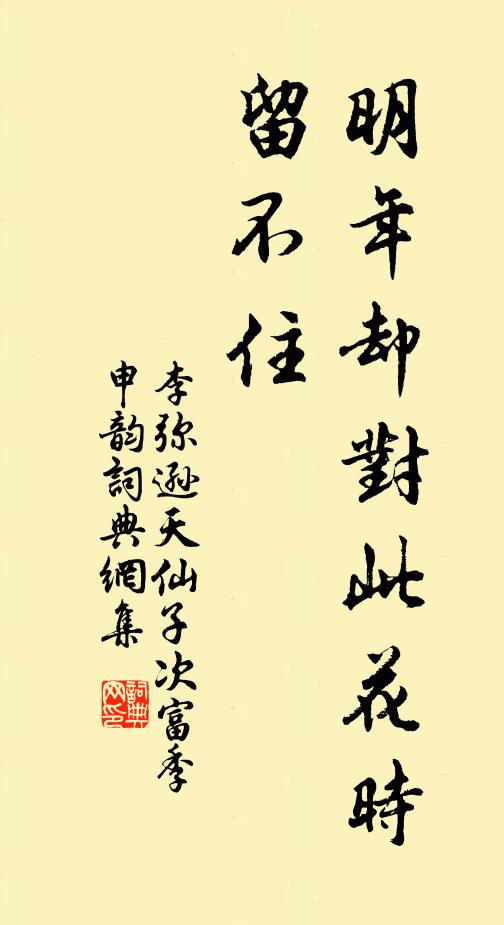 明年却對此花時
留不住
李弥遜天仙子次富季
申韵詞典網集
詞典
网印